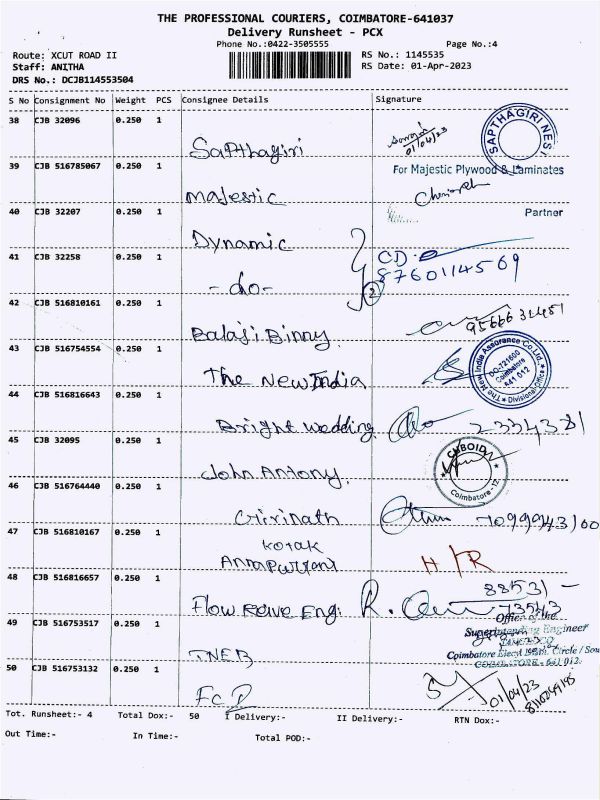 THE PROFESSIONAL COURIERS, COIMBATORE-641037
Delivery Runsheet - PCX
Phone No.:0422-3505555 Page No.:4
Route: XCUT ROAD II RS No.: 1145535
Staff: ANITHA RS Date: 01-Apr-2023
DRS No.: DCJB114553504
S No Consignment No Weight PCS Consignee Details Signature
38 CJB 32096 0.250 1
Sapthagiri 01/04/23 SAPTHAGIRI NEST
39 CJB 516785067 0.250 1 For Majestic Plywood & Laminates
Majestic
40 CJB 32207 0.250 1 Partner
Dynamic
41 CJB 32258 0.250 1 CD.
-do- 2 8760114569
42 CJB 516810161 0.250 1
Balaji Binny 9566631451
43 CJB 516754554 0.250 1 The New India Assurance Co.Ltd. DO-721600 Coimbatore 641 012 Divisional Office
The New India
44 CJB 516816643 0.250 1
Bright wedding
45 CJB 32095 0.250 1
John Antony Coimbatore-12
46 CJB 516764440 0.250 1
Girinath
47 CJB 516810167 0.250 1 Kotak
Annapurrani H/R
48 CJB 516816657 0.250 1 88531
Flow Rave Eng: 73543
49 CJB 516753517 0.250 1 Office of the
Superintending Engineer
TNEB Coimbatore Elecy. Distn. Circle / Sou
COIMBATORE - 641 012.
50 CJB 516753132 0.250 1
FCI 01/04/23
Tot. Runsheet:- 4 Total Dox:- 50 I Delivery:- II Delivery:- RTN Dox:-
Out Time:- In Time:- Total POD:-